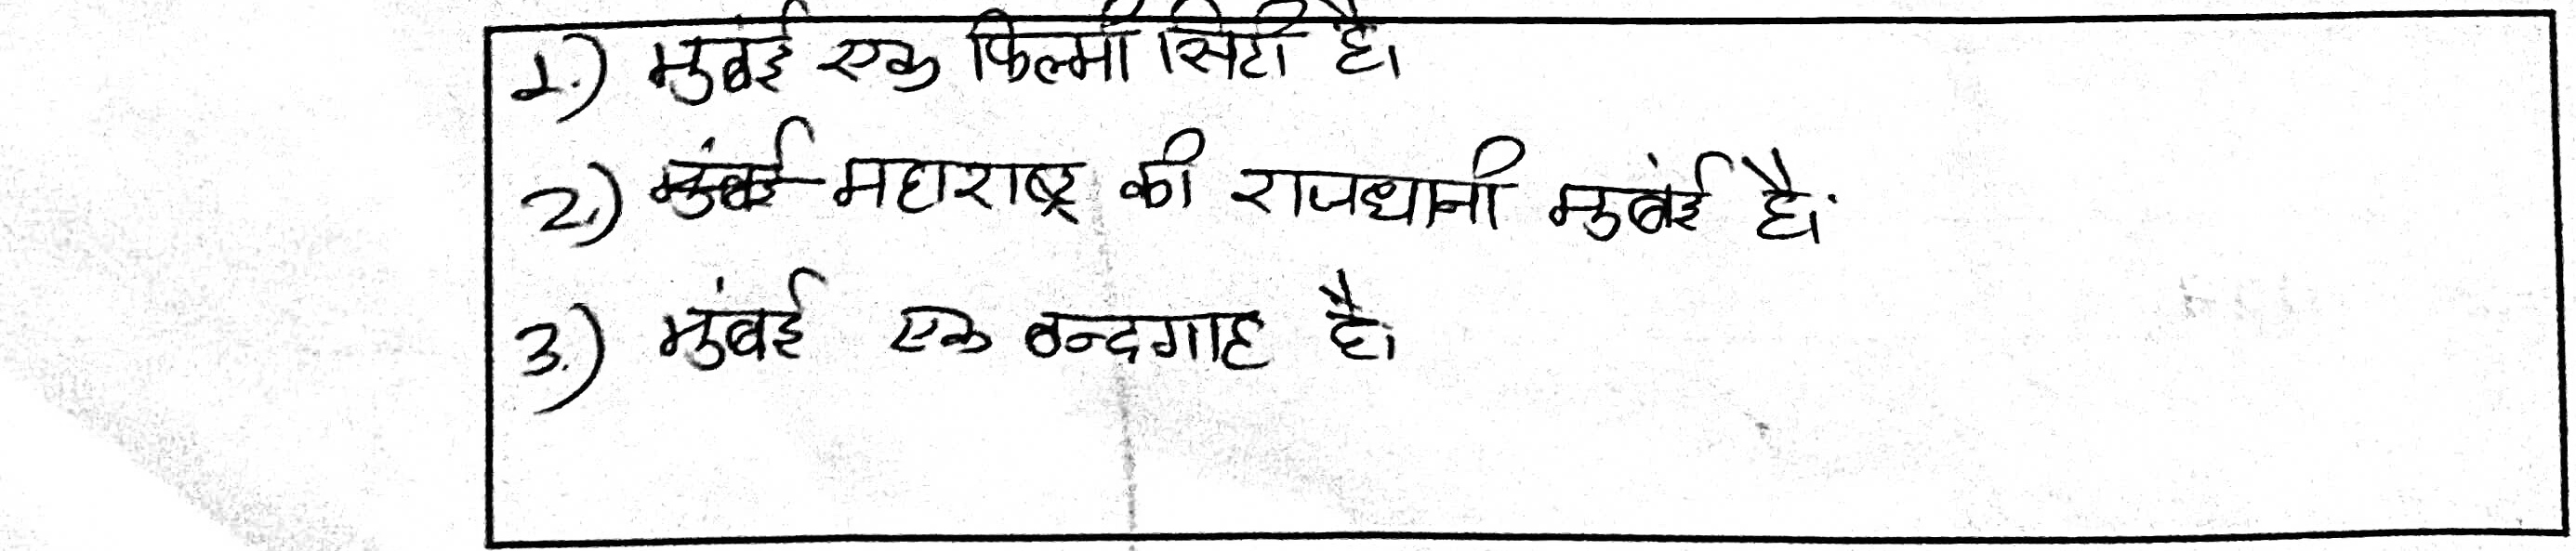 1.) मुंबई एक फिल्मी सिटी है।
2.) मुंबई महाराष्ट्र की राजधानी मुबंई है।
3.) मुंबई एक बन्दगाह है।